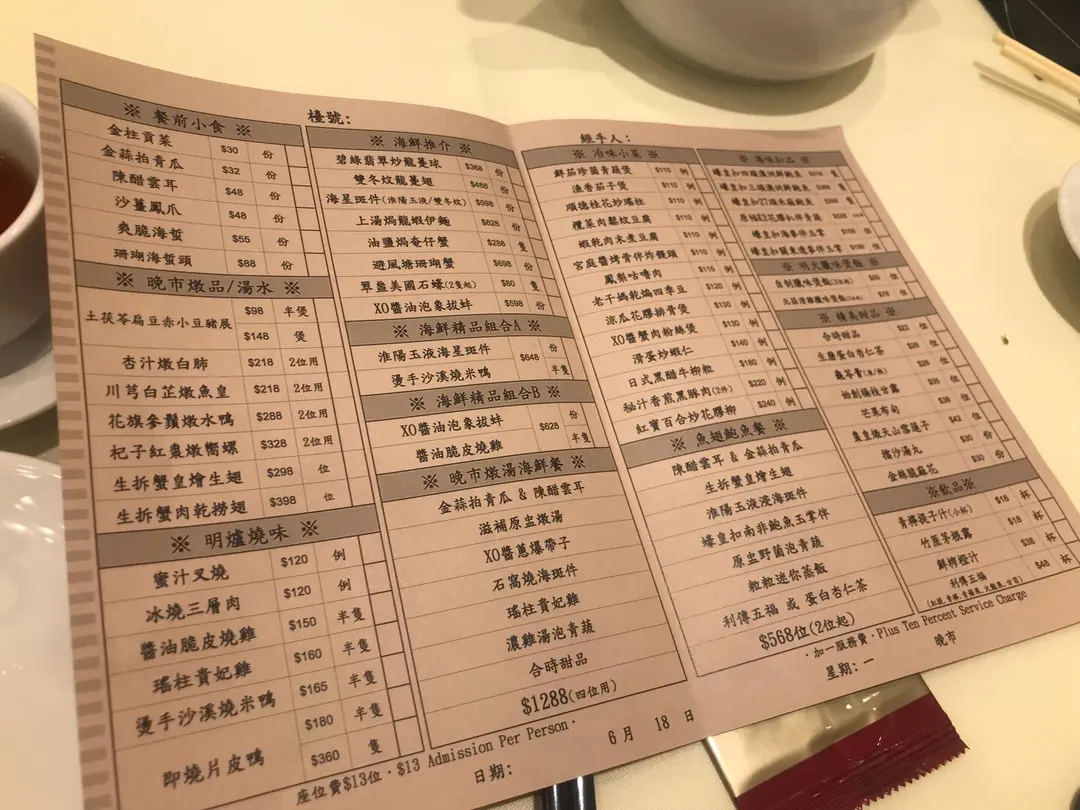 檯號:
經手人:
※ 餐前小食 ※
金柱貢菜 $30 份
金蒜拍青瓜 $32 份
陳醋雲耳 $48 份
沙薑鳳爪 $48 份
爽脆海蜇 $55 份
珊瑚海蜇頭 $88 份
※ 晚市燉品/湯水 ※
土茯苓扁豆赤小豆豬𦟌 $98 半煲
$148 煲
杏汁燉白肺 $218 2位用
川芎白芷燉魚皇 $218 2位用
花旗參鬚燉水鴨 $288 2位用
杞子紅棗燉嚮螺 $328 2位用
生拆蟹皇燴生翅 $298 位
生拆蟹肉乾撈翅 $398 位
※ 明爐燒味 ※
蜜汁叉燒 $120 例
冰燒三層肉 $120 例
醬油脆皮燒雞 $150 半隻
瑤柱貴妃雞 $160 半隻
燙手沙溪燒米鴨 $165 半隻
即燒片皮鴨 $180 半隻
$360 隻
※ 海鮮推介 ※
碧綠翡翠炒龍躉球 $368 份
雙冬炆龍躉翅 $468 份
海星斑件(淮陽玉液/雙冬炆) $598 份
上湯焗龍蝦伊麵 $628 份
油鹽焗奄仔蟹 $288 隻
避風塘珊瑚蟹 $698 份
翠盞美國石蠔(2隻起) $80 隻
XO醬油泡象拔蚌 $598 份
※ 海鮮精品組合A ※
淮陽玉液海星斑件 $648 份
燙手沙溪燒米鴨 半隻
※ 海鮮精品組合B ※
XO醬油泡象拔蚌 $628 份
醬油脆皮燒雞 半隻
※ 晚市燉湯海鮮餐 ※
金蒜拍青瓜 & 陳醋雲耳
滋補原盅燉湯
XO醬蔥爆帶子
石窩燒海斑件
瑤柱貴妃雞
濃雞湯泡青蔬
合時甜品
$1288(四位用)
※ 冶味小菜 ※
鮮茄珍菌青蔬煲 $110 例
漁香茄子煲 $110 例
順德桂花炒瑤柱 $110 例
欖菜肉鬆炆豆腐 $110 例
蝦乾肉末煮豆腐 $110 例
宮庭醬烤骨伴炸饅頭 $110 例
鳳梨咕嚕肉 $115 例
老干媽乾煸四季豆 $120 例
涼瓜花膠排骨煲 $130 例
XO醬蟹肉粉絲煲 $130 例
滑蛋炒蝦仁 $140 例
日式黑醋牛柳粒 $180 例
秘汁香煎黑豚肉(2件) $220 例
紅寶百合炒花膠柳 $240 例
※ 魚翅鮑魚餐 ※
陳醋雲耳 & 金蒜拍青瓜
生拆蟹皇燴生翅
淮陽玉液浸海斑件
蠔皇扣南非鮑魚玉掌伴
原盅野菌泡青蔬
粒粒迷你蒸飯
利傳五福 或 蛋白杏仁茶
$568位(2位起)
※ 海味扣品 ※
※ 明火臘味煲飯 ※
※ 精美甜品 ※
合時甜品 $22 位
生磨蛋白杏仁茶 $28 位
芒果布甸
擂沙湯丸 $30 份
金絲脆麻花 $30 份
※飲品※
青檸提子汁(小杯) $18 杯
竹蔗茅根露 $18 杯
鮮榨橙汁 $38 杯
利傳五福 $48 杯
座位費$13位 · $13 Admission Per Person ·
· 加一服務費 · Plus Ten Percent Service Charge
日期: 6 月 18 日 星期: 一 晚市